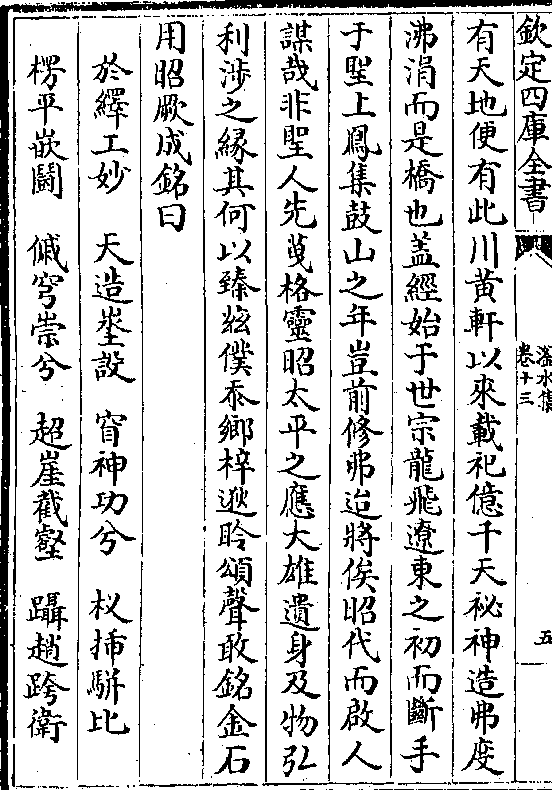 欽定四庫全書
滏水集
卷十三
五
有天地便有此川黄軒以來載祀億千天祕神造弗度
沸涓而是橋也盖經始于世宗龍飛遼東之初而斷手
于聖上鳳集鼓山之年豈前修弗迨將俟昭代而啟人
謀哉非聖人先蒐格靈昭太平之應大雄遺身及物弘
利渉之縁其何以臻兹僕忝鄉梓逖聆頌聲敢銘金石
用昭厥成銘曰
於繹工妙　天造埊設　窅神功兮　杈挿騈比
楞平嵌鬭　傶穹崇兮　超崖截壑　躡趙跨衛